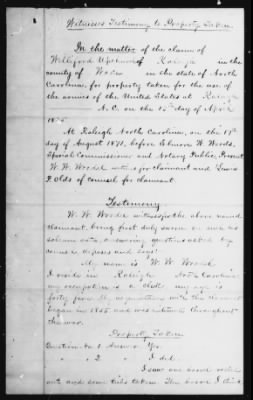 Witnesses Testimony to Property Taken
In the matter of the claim of
Williford Upchurch of Raleigh in the
county of Wake in the state of North
Carolina for property taken for the use of
the armies of the United States at Raleigh
N.C. on the 15th day of April
1865
At Raleigh North Carolina, on the
day of August 1871, before W. Woods,
Special Commissioner and Notary Public, Present
W. W. witness for claimant and Lewis
P. Olds of counsel for claimant
Testimony
W. W. witness for the above named
claimant, being first duly sworn on such his
solemn oath answering questions asked by
counsel deposes and says
My name is W. W.
I reside in Raleigh North Carolina
my occupation is a clerk my age is
forty five My acquaintance with the claimant
began in 1855 and was intimate throughout
the war.
Property Taken
Question No. 1 Answer Yes.
" " 2 " I did.
I saw one horse
and some taken. The horse I think